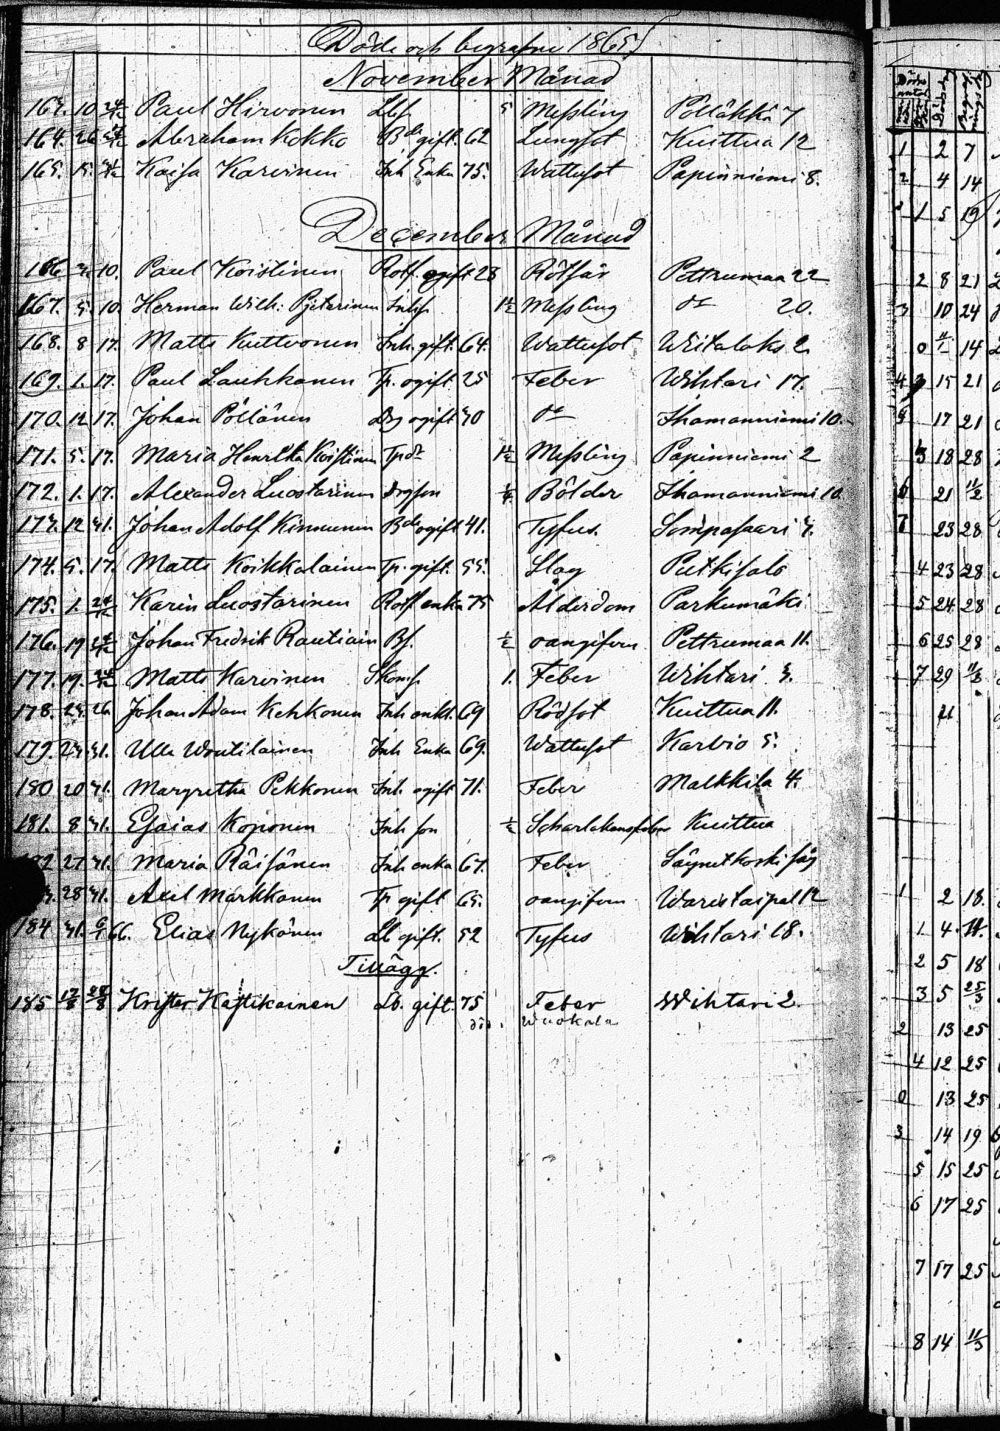 Döde och begrafne 1865
November Månad
163. 10 24/12 Paul Hirvonen Lbf. 5 Messling Pölläkkä 7
164. 26 Abraham Kokko Bde gift. 62 Lungsot Kuittua 12
165. 15. Kaisa Karvinen Inh Enka 75. Wattusot Papinniemi 8.
December Månad
166 10. Paul Koistinen Rotf. 28 Rötfär Pettrumaa 22
167. 5. 10. Herman Wilh. Pjetarinen Inhf. 1½ Messling do 20.
168. 8 17. Matts Kuttvonen Inh. gift. 64. Wattusot Witalaks 2
169. 1. 17. Paul Laukkanen Tp. ogift 25 Feber Wihtari 17.
170. 12 17. Johan Pöllänen Drg ogift 40 do Ihamanniemi 10.
171. 5. 17. Maria Henrikka Koistinen Tpdr 1½ Messling Papinniemi 2
172. 1. 17. Alexander Luostarinen Drgson Bölder Ihamanniemi 10
173. 12 31. Johan Adolf Kinnunen Bde ogift 41. Tyfus. Sompasaari 3.
174. 5. 17. Matts Koikkalainen Tp. gift. 55. Slag Putkisalo
175. 1. 24/12 Karin Luostarinen Rotf enka 75 Ålderdom Parkumäki
176. 19 24/12 Johan Fredrik Rautiain Bf. ½ oangifven Pettrumaa 11.
177. 19. 24/12 Matts Karvinen Skomf 1. Feber Wihtari 3.
178. 23. 26. Johan Adam Kekkonen Inh enkl. 69 Rödsot Kuittua 11.
179. 23. 31. Ulla Woutilainen Inh Enka 69. Wattusot Karvio 5.
180 20 31. Margretha Pekkonen Inh ogift 71. Feber Malkkila 4.
181. 8 31. Esaias Kojonen Inh son ½ Scharlakansfeber Kuittua
182 27 31. Maria Räisänen Inh enka 67. Feber Säynetkoski såg
3. 28 31. Axel Markkanen Tp gift 65. oangifven Waristaipal 12
184 31. 6/1 66. Elias Nykönen Lb gift. 52 Tyfus Wihtari 18.
Tillägg.
185 28/8 Krister Kastikainen Lb. gift. 75 Feber Wihtari 2.
död i Wuokala
Döde
1 2 7
2 4 14
1 5 19
2 8 21
3 10 24
0 14
4 15 21
5 17 21
3 18 28
6 21 11/2
7 23 28
4 23 28
5 24 28
6 25 28
7 29 11/3
1 2 18.
1 4. 11.
2 5 18
3 5 25/3
2 13 25
4 12 25
0 13 25
3 14 19
5 15 25
6 17 25
7 17 25
8 14 11/3